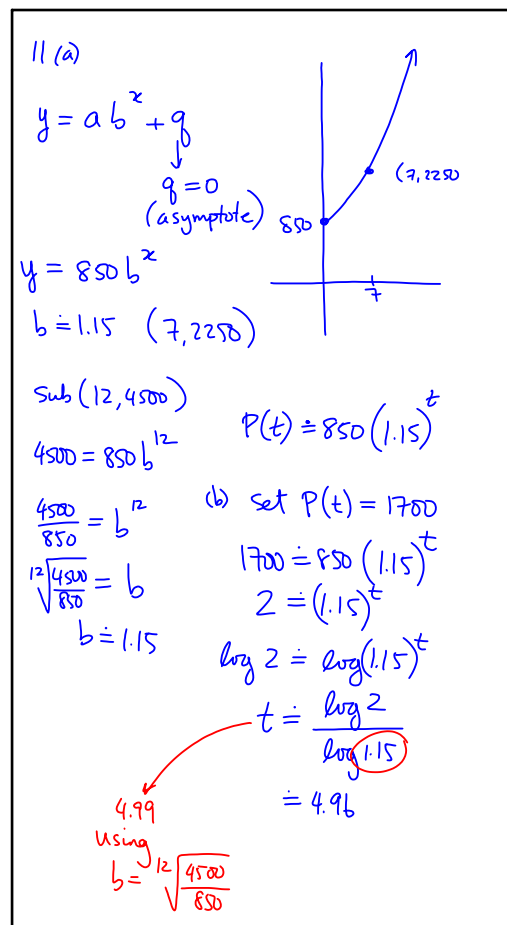 11 (a)
y = ab^x + q
↓
q = 0
(asymptote)
850
(7,2250
7
y = 850b^x
b ≐ 1.15 (7,2250)
Sub (12,4500)
4500 = 850b^12
4500/850 = b^12
12√(4500/850) = b
b ≐ 1.15
P(t) ≐ 850(1.15)^t
(b) set P(t) = 1700
1700 ≐ 850(1.15)^t
2 ≐ (1.15)^t
log 2 ≐ log(1.15)^t
t ≐ log 2 / log 1.15
≐ 4.96
4.99
using
b = 12√(4500/850)